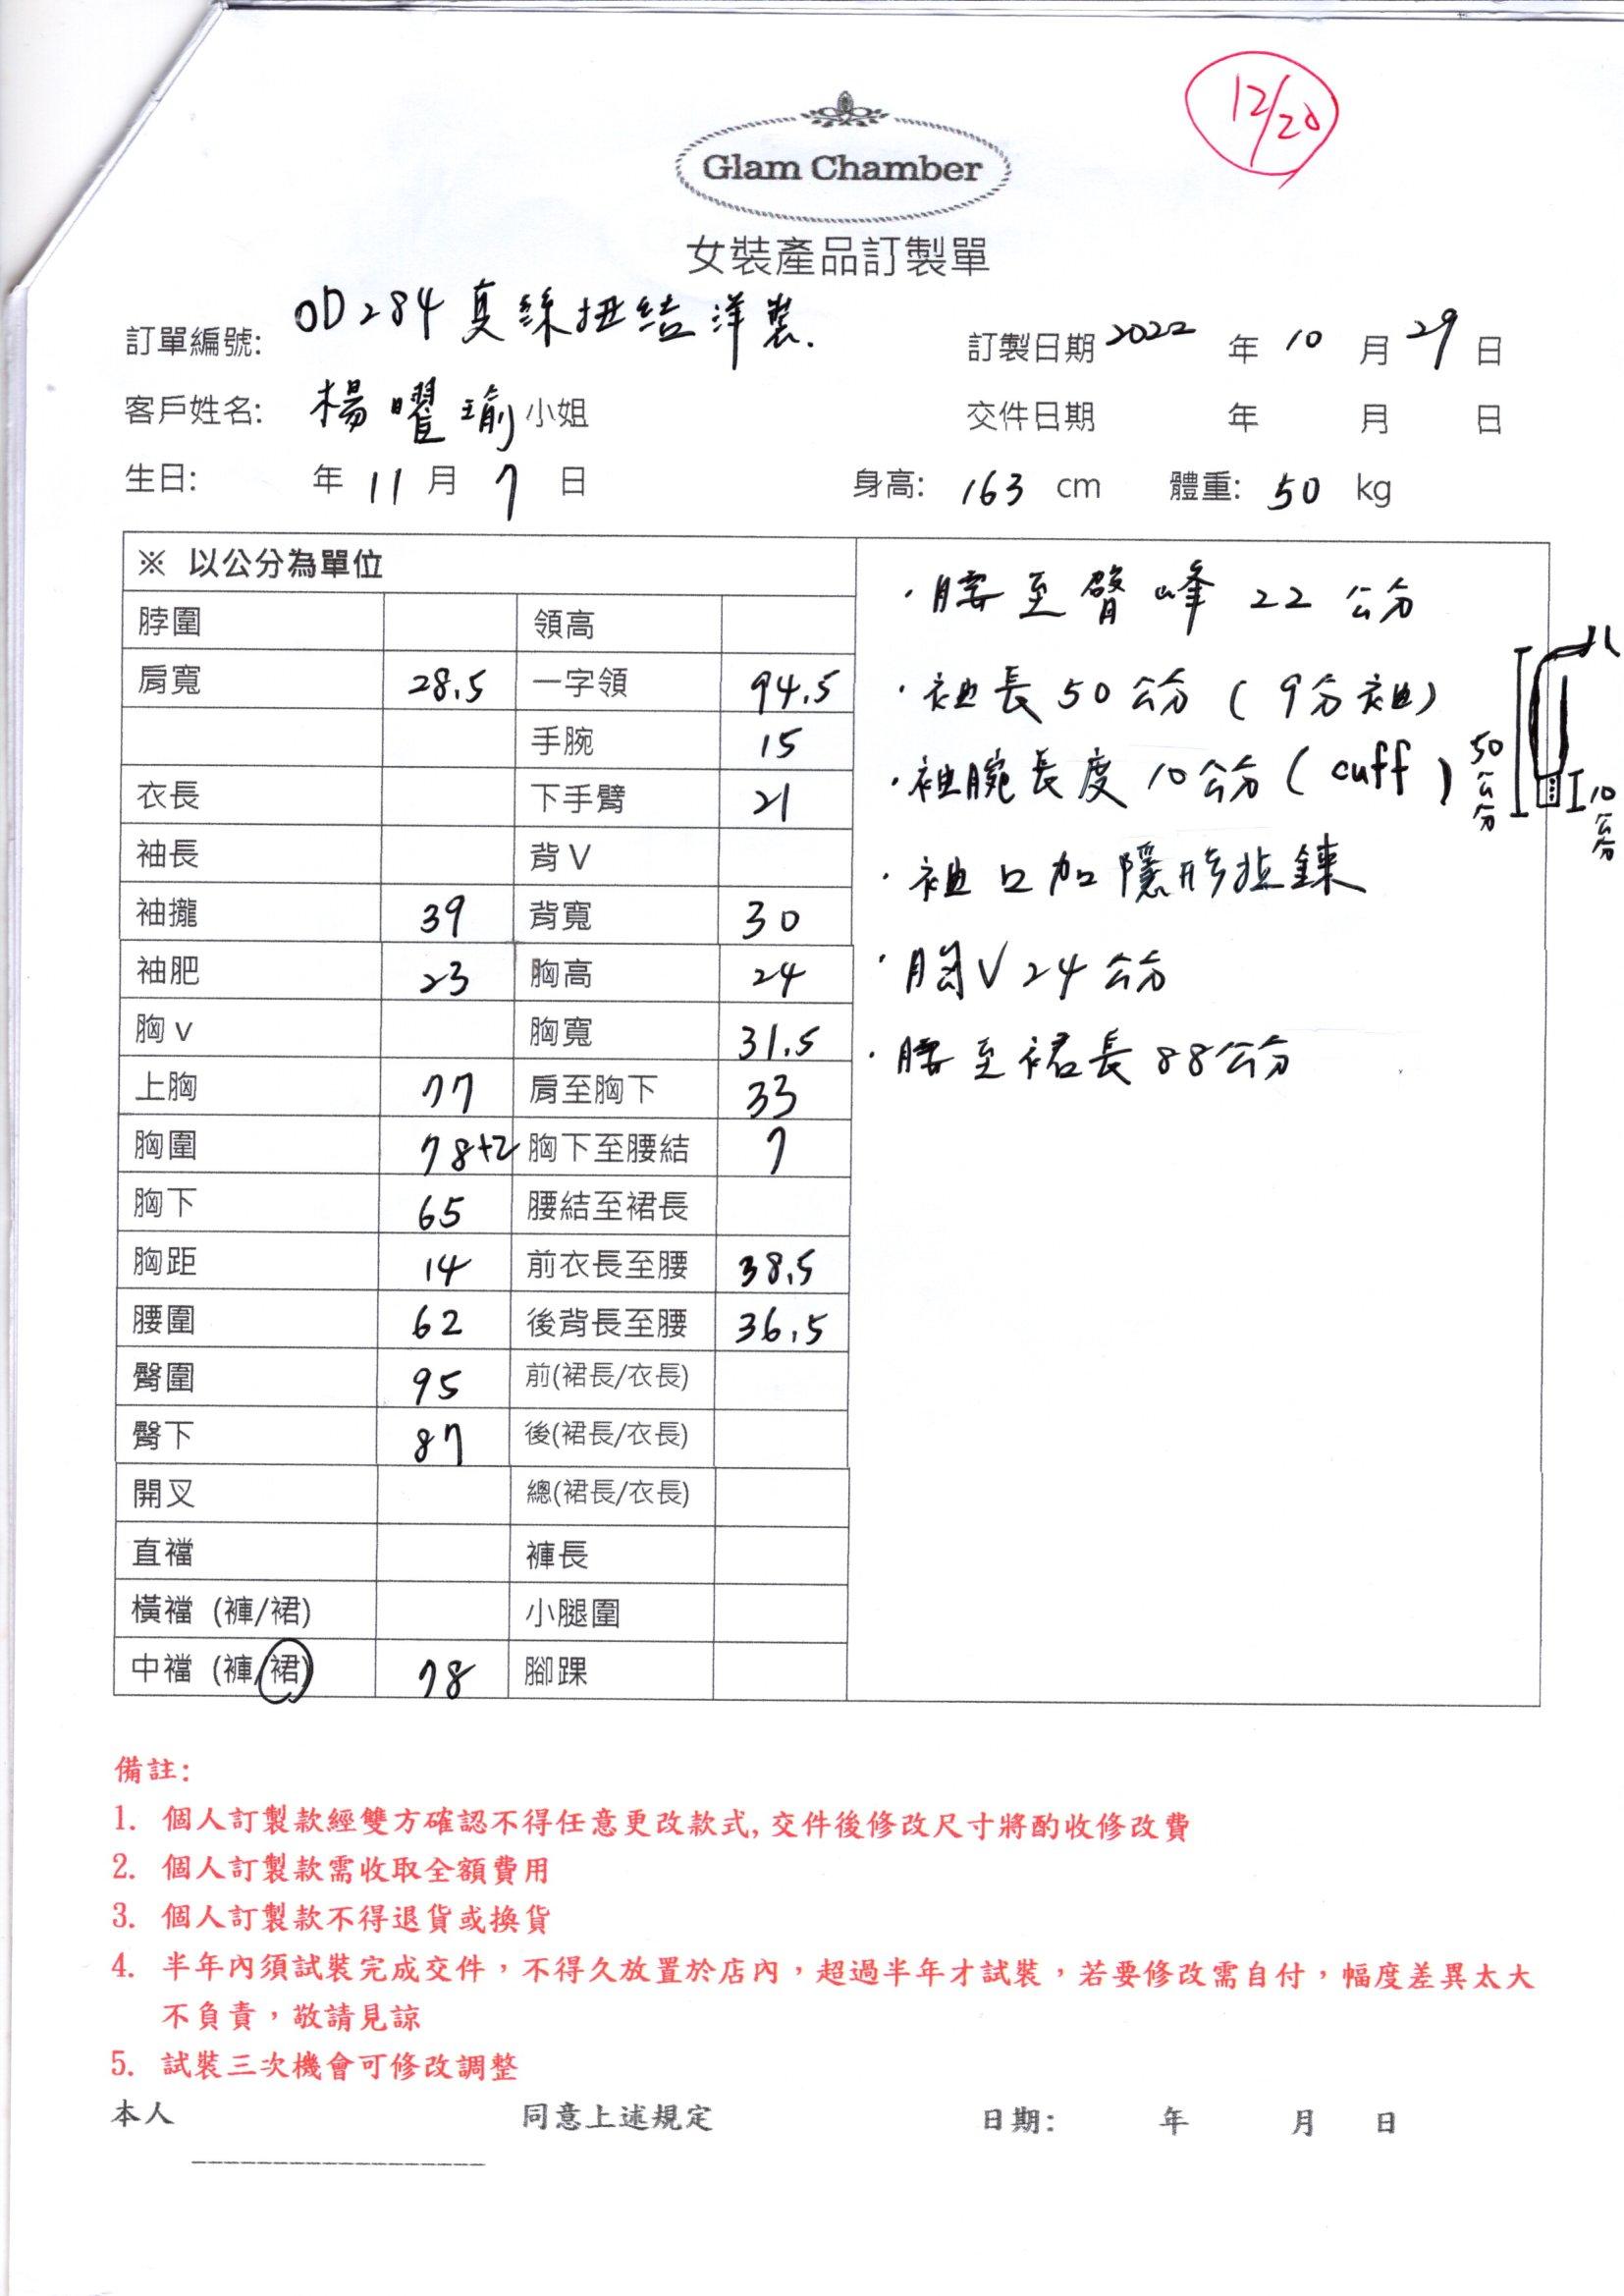 12/20
Glam Chamber
女裝產品訂製單
訂單編號: OD284 真絲扭結洋裝. 訂製日期 2022 年 10 月 29 日
客戶姓名: 楊曜瑜 小姐 交件日期 年 月 日
生日: 年 11 月 7 日 身高: 163 cm 體重: 50 kg
※ 以公分為單位
脖圍 領高
肩寬 28.5 一字領 94.5
手腕 15
衣長 下手臂 21
袖長 背V
袖攏 39 背寬 30
袖肥 23 胸高 24
胸v 胸寬 31.5
上胸 77 肩至胸下 33
胸圍 78+2 胸下至腰結 7
胸下 65 腰結至裙長
胸距 14 前衣長至腰 38.5
腰圍 62 後背長至腰 36.5
臀圍 95 前(裙長/衣長)
臀下 87 後(裙長/衣長)
開叉 總(裙長/衣長)
直襠 褲長
橫襠 (褲/裙) 小腿圍
中襠 (褲/裙) 78 腳踝
·腰至臀峰 22 公分
·袖長50公分 (9分袖)
·袖腕長度 10公分 (cuff)
50公分
10公分
·袖口加隱形拉鍊
·胸V 24公分
·腰至裙長88公分
備註:
1. 個人訂製款經雙方確認不得任意更改款式,交件後修改尺寸將酌收修改費
2. 個人訂製款需收取全額費用
3. 個人訂製款不得退貨或換貨
4. 半年內須試裝完成交件，不得久放置於店內，超過半年才試裝，若要修改需自付，幅度差異太大
不負責，敬請見諒
5. 試裝三次機會可修改調整
本人 同意上述規定 日期: 年 月 日